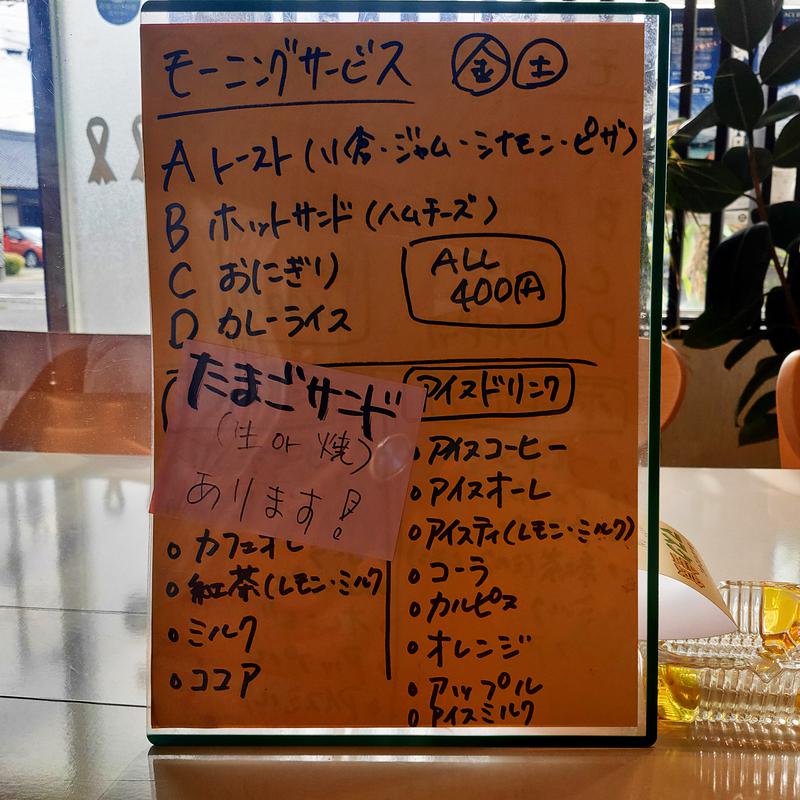 モーニングサービス 金 土
A トースト(小倉・ジャム・シナモン・ピザ)
B ホットサンド(ハムチーズ)
C おにぎり
D カレーライス
ALL
400円
たまごサンド
(生 or 焼)
あります!
カフェオレ
紅茶(レモン・ミルク
ミルク
ココア
アイスドリンク
アイスコーヒー
アイスオーレ
アイスティ(レモン・ミルク)
コーラ
カルピス
オレンジ
アップル
アイスミルク